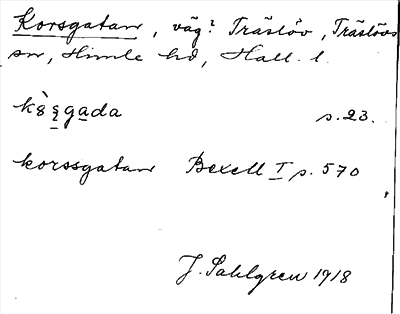 Korsgatan, väg? Träslöv, Träslövs
sn, Himle hd, Hall. l.
kò̀şgada s. 23.
korssgatan Bexell I s. 570
J. Sahlgren 1918